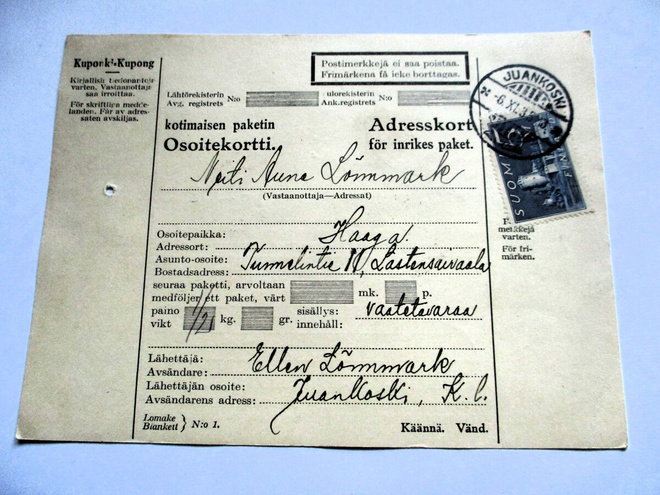 Kuponki-Kupong
Kirjallisia tiedonantoja
varten. Vastaanottaja
saa irroittaa.
För skriftliga medde-
landen. Får av adres-
saten avskiljas.
Postimerkkejä ei saa poistaa.
Frimärkena få icke borttagas.
Lähtörekisterin
Avg. registrets N:o
ulorekisterin
Ank.registrets N:o
kotimaisen paketin
Osoitekortti.
Adresskort
för inrikes paket.
Neiti Aune Lömmark
(Vastaanottaja—Adressat)
Osoitepaikka
Adressort: Haaga
Asunto-osoite:
Bostadsadress: Tunnelintie 11, Lastensairaala
seuraa paketti, arvoltaan
medföljer ett paket, värt mk. p.
paino
vikt 1/2 kg. gr. sisällys:
innehåll: vaatetavaraa
Lähettäjä:
Avsändare: Ellen Lömmark
Lähettäjän osoite:
Avsändarens adress: Juankoski, K.l.
Lomake
Blankett } N:o 1.
Käännä. Vänd.
JUANKOSKI
6.XI.
SUOMI
FINLAND
10
metkkejä
varten.
För fri-
märken.